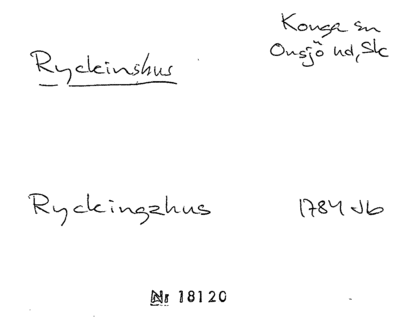 Konga sn
Onsjö hd, Sk
Ryckinshus
Ryckingzhus 1784 Jb
Nr 18120